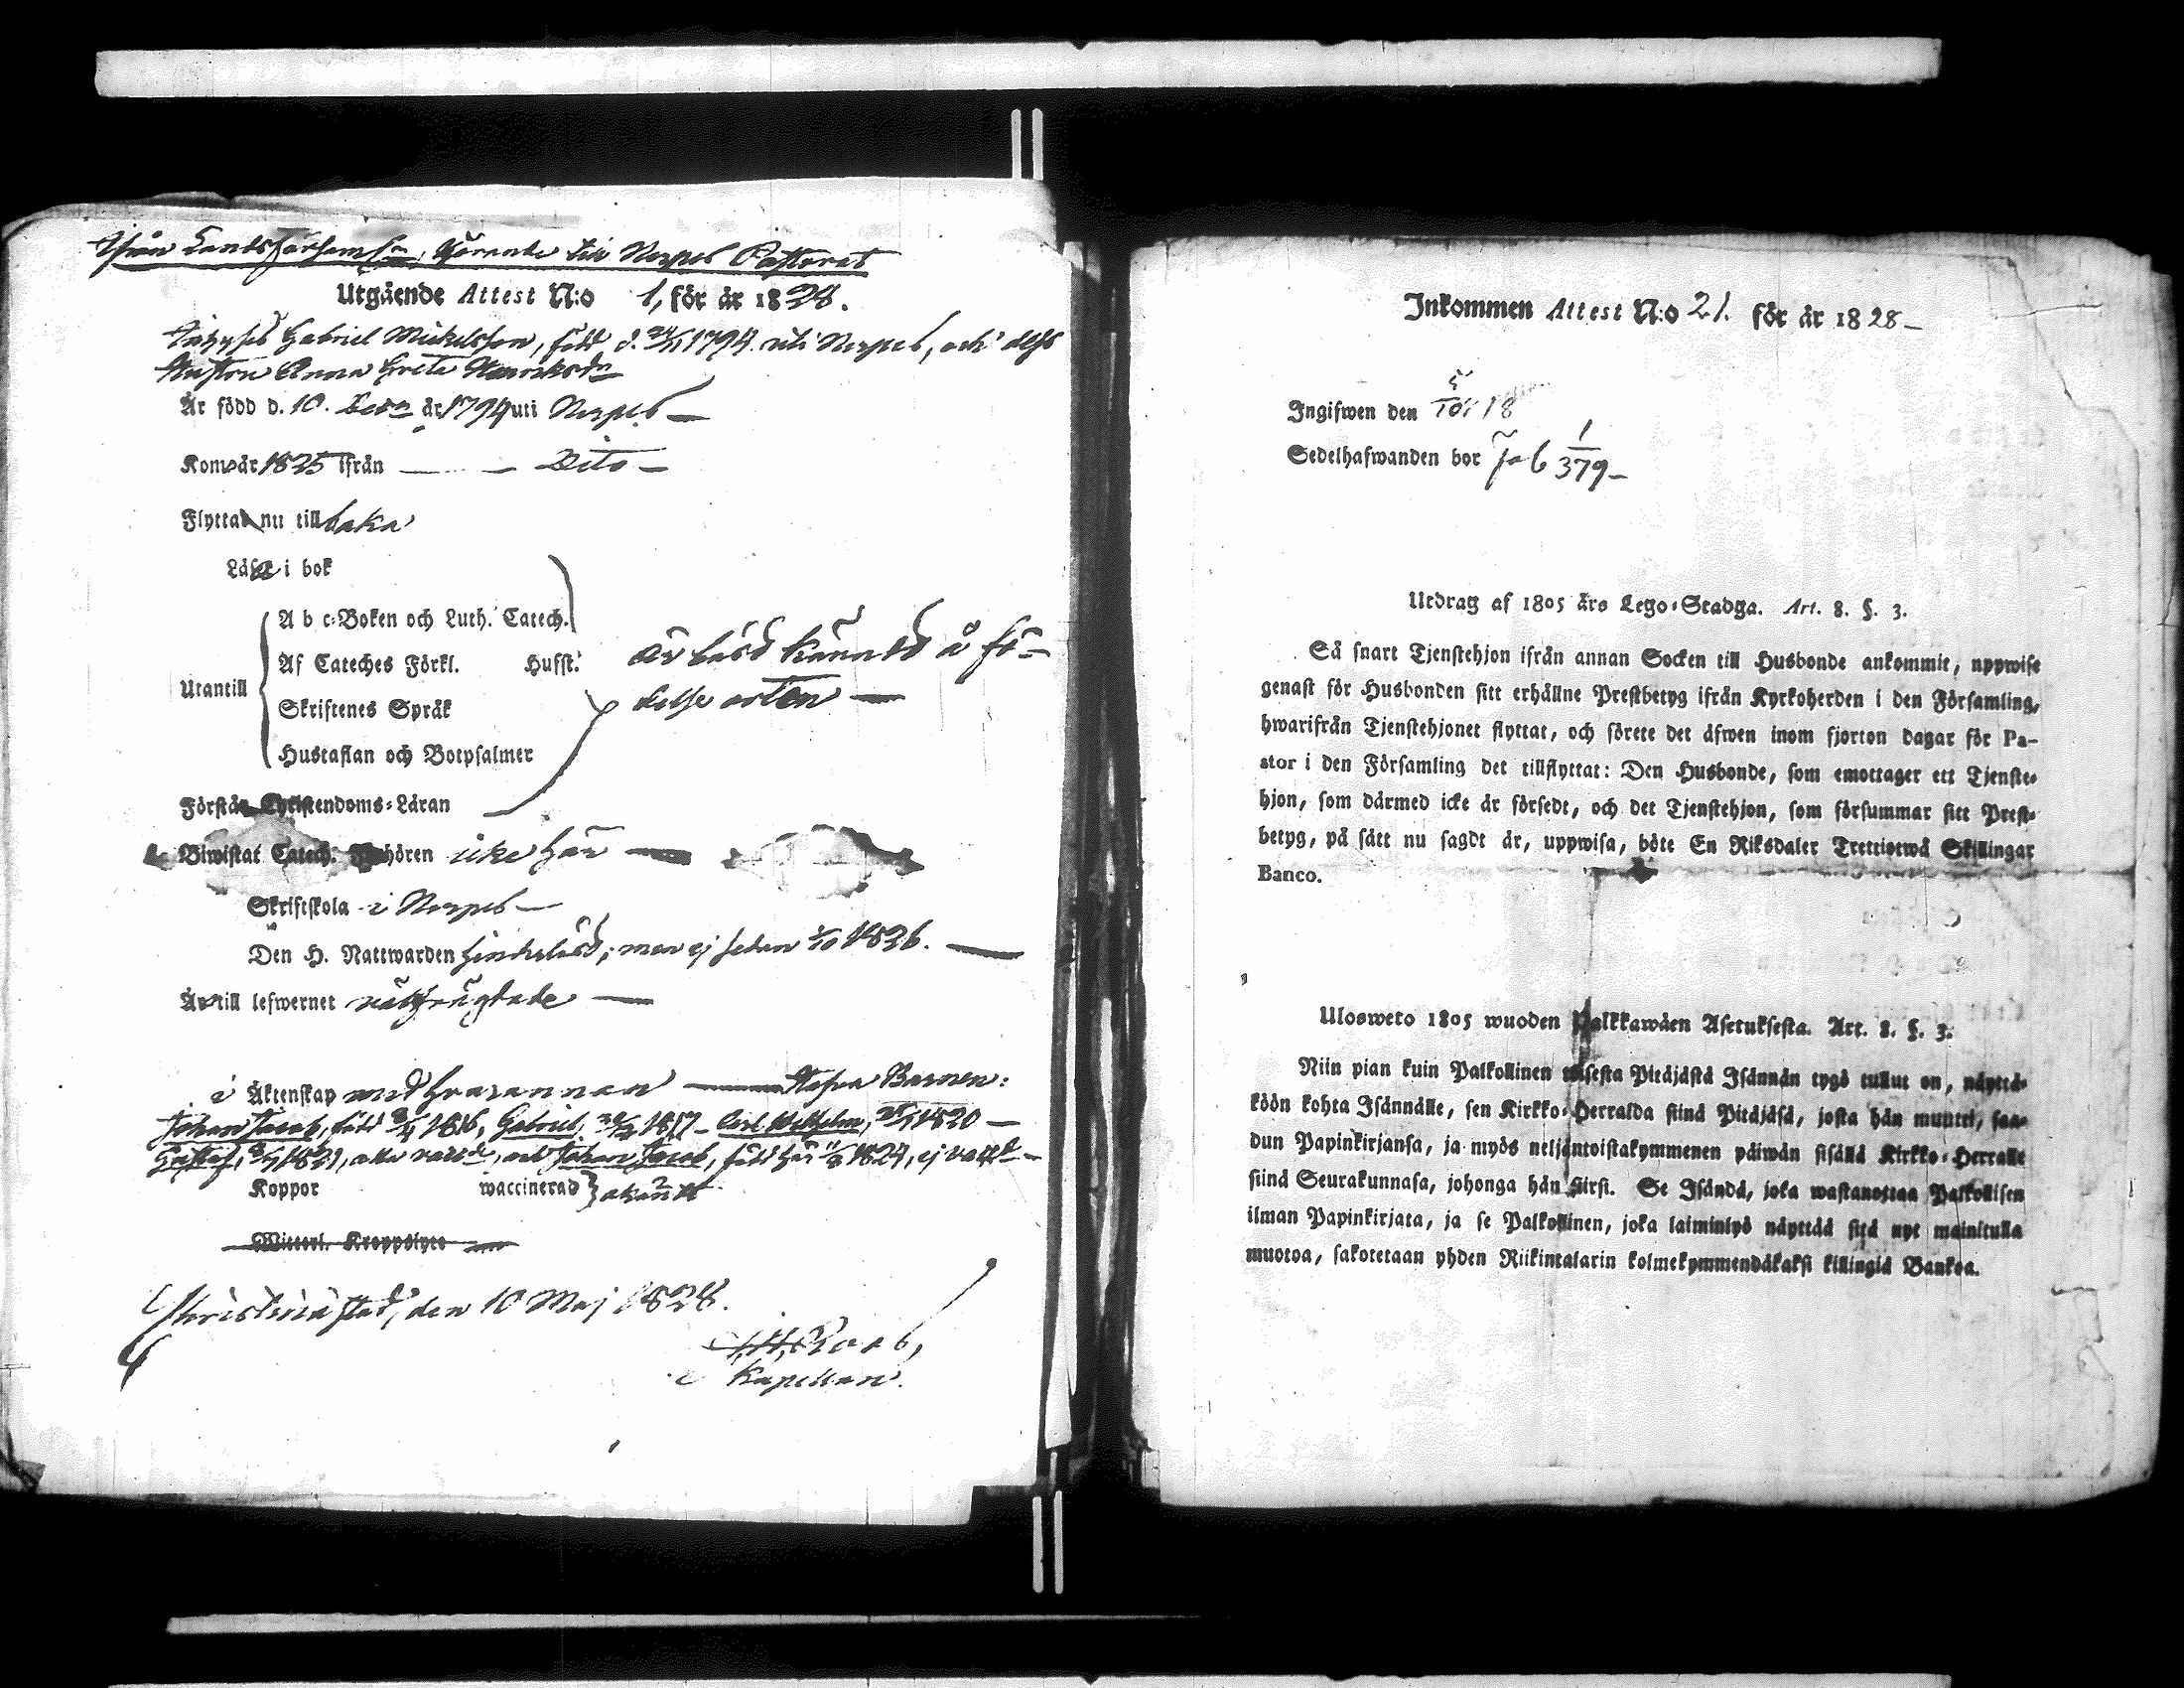 Ifrån Landsförsamlin, hörande till Nerpes Pastorat
Utgående Attest N:o 1, för år 1828.
Inhyses Gabriel Mickelsson, född d. 24/11 1794 uti Nerpes, och dess
Hustru Anna Greta Henricksdr
Är född d. 10. Decr år 1794 uti Nerpes
Kom år 1825 ifrån Dito
Flyttar nu tillbaka
Läser i bok
A b c-Boken och Luth. Catech.
Af Cateches Förkl. Husst.
är bäst kända å fö-
Utantill
Skriftenes Språk
delse orten
Hustaflan och Botpsalmer
Förstår Christendoms-Läran
Biwistat Catech. Förhören icke här
Skriftskola i Nerpes
Den H. Nattwarden ; men ej sedan 1/10 1826.
Är till lefwernet
i Äktenskap med hvarannan Hafva Barnen:
Johan Jacob, född 1816, Gabriel, 1817 Carl Wilhelm, 1820
Gustaf, 1821, alla , och Johan Jacob, född här 11/8 1827, ej
Koppor waccinerad okändt
Witterl. Kroppslyte
Christinæstad, den 10 Maj 1828.
Roos,
Kapellan.
Inkommen Attest N:o 21. för år 1828
Ingifwen den 5/10 18
Sedelhafwanden bor 1/379
Utdrag af 1805 års Lego-Stadga. Art. 8. §. 3.
Så snart Tjenstehjon ifrån annan Socken till Husbonde ankommit, uppwise
genast för Husbonden sitt erhållne Prestbetyg ifrån Kyrkoherden i den Församling,
hwarifrån Tjenstehjonet flyttat, och förete det äfwen inom fjorton dagar för Pa-
stor i den Församling det tillflyttat: Den Husbonde, som emottager ett Tjenste-
hjon, som därmed icke är försedt, och det Tjenstehjon, som försummar sitt Prest-
betyg, på sätt nu sagdt är, uppwisa, böte En Riksdaler Trettiotwå Skillingar
Banco.
Ulosweto 1805 wuoden Palkkawäen Asetuksesta. Art. 8. §. 3.
Niin pian kuin Palkollinen toisesta Pitäjästä Isännän tygö tullut on, näyttä-
köön kohta Isännälle, sen Kirkko-Herralda siinä Pitäjäsä, josta hän muutti, saa-
dun Papinkirjansa, ja myös neljäntoistakymmenen päiwän sisällä Kirkko-Herralle
siinä Seurakunnasa, johonga hän siirsi. Se Isändä, joka wastanottaa Palkollisen
ilman Papinkirjata, ja se Palkollinen, joka laiminlyö näyttää sitä nyt mainitulla
muotoa, sakotetaan yhden Riikintalarin kolmekymmendäkaksi killingiä Bankoa.